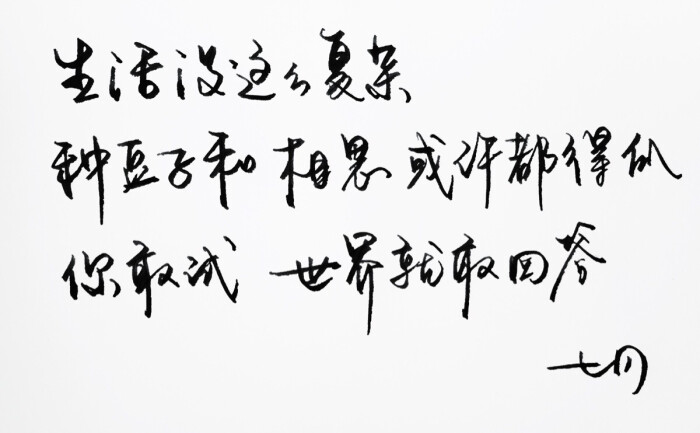 生活没这么复杂
种豆子和相思或许都得瓜
你敢试 世界就敢回答
七月